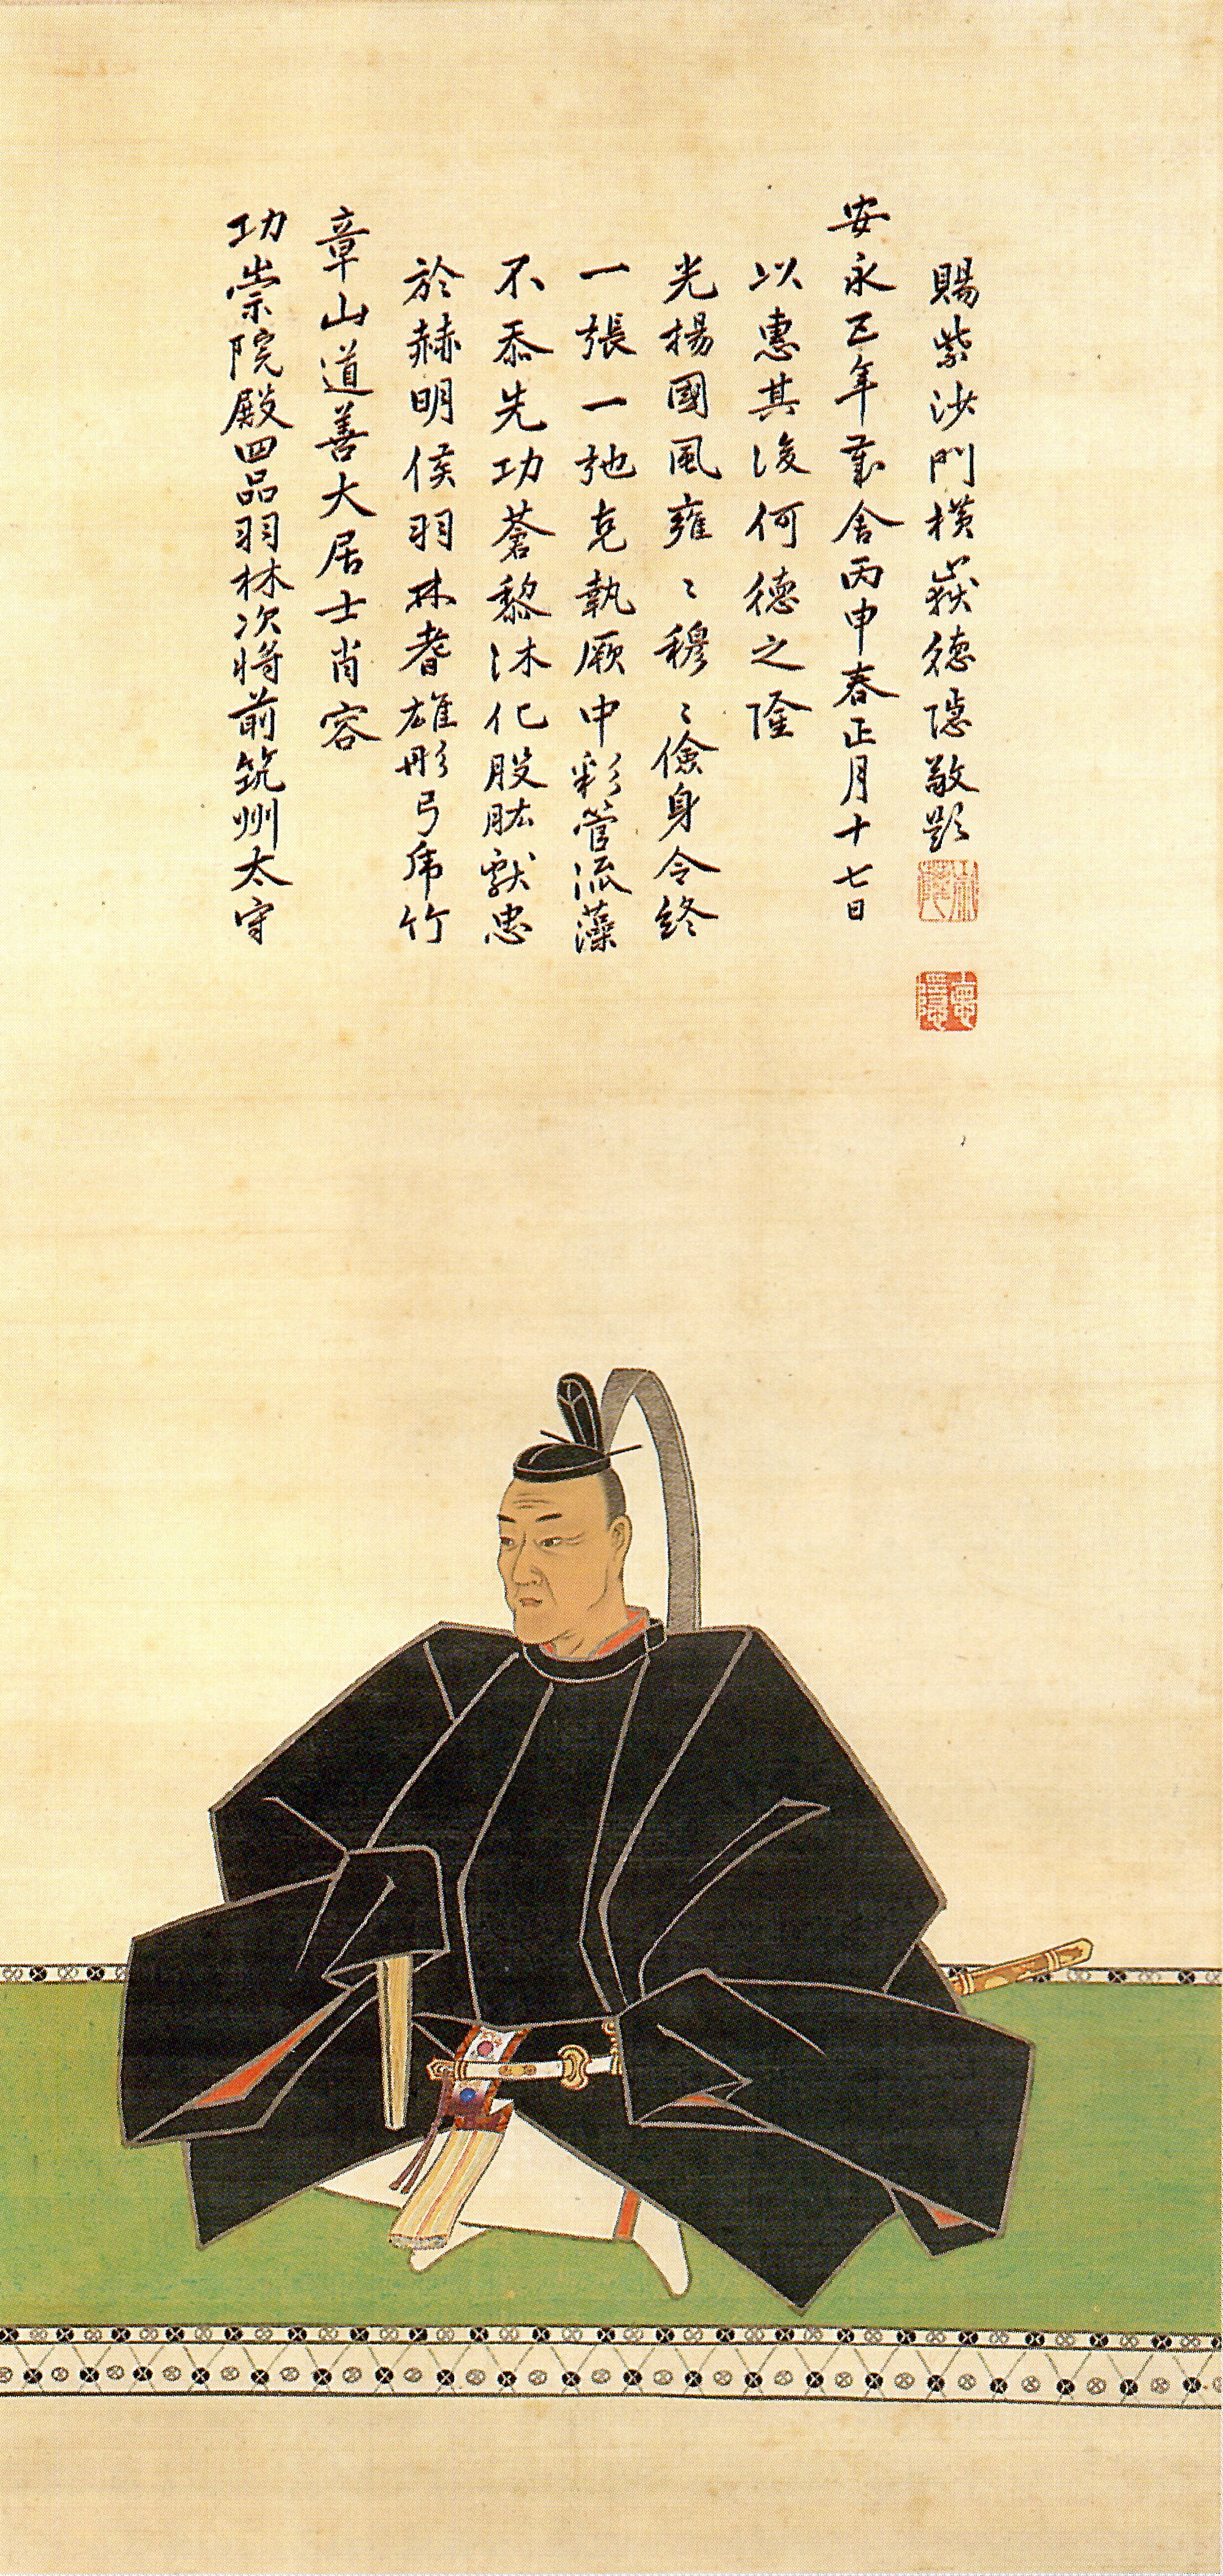 功崇院殿四品羽林次將前筑州太守
章山道善大居士肖容
於赫明侯羽林耆雄彤弓虎竹
不忝先功蒼黎沐化股肱獻忠
一張一弛克執厥中彩管流藻
光揚國風雍〻穆〻儉身令終
以惠其後何德之隆
安永五年歲舍丙申春正月十七日
賜紫沙門横嶽德隱敬題
悳隱